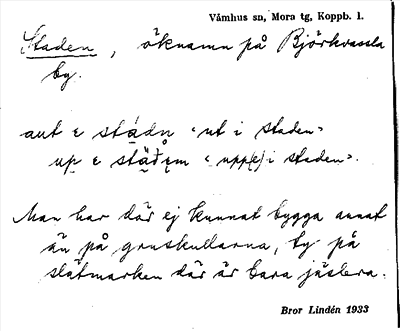 Våmhus sn, Mora tg, Koppb. l.
Staden, öknamn på Björkvassla
by.
aut e städn "ut i staden"
up e städem "upp(e) i staden".
Man har där ej kunnat bygga annat
än på gruskullarna, ty på
slätmarken där är bara jäslera.
Bror Lindén 1933